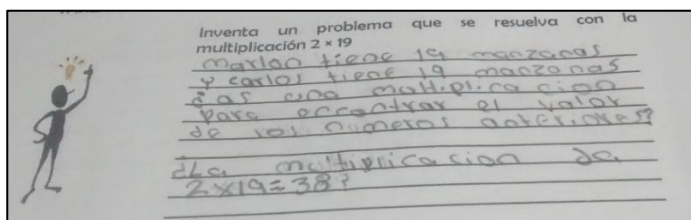 Inventa un problema que se resuelva con la
multiplicación 2 × 19
marlon tiene 19 manzanas
y carlos tiene 19 manzanas
una multiplicacion
para encontrar el valor
de los numeros anteriores?
multiplicacion da
2×19=38?